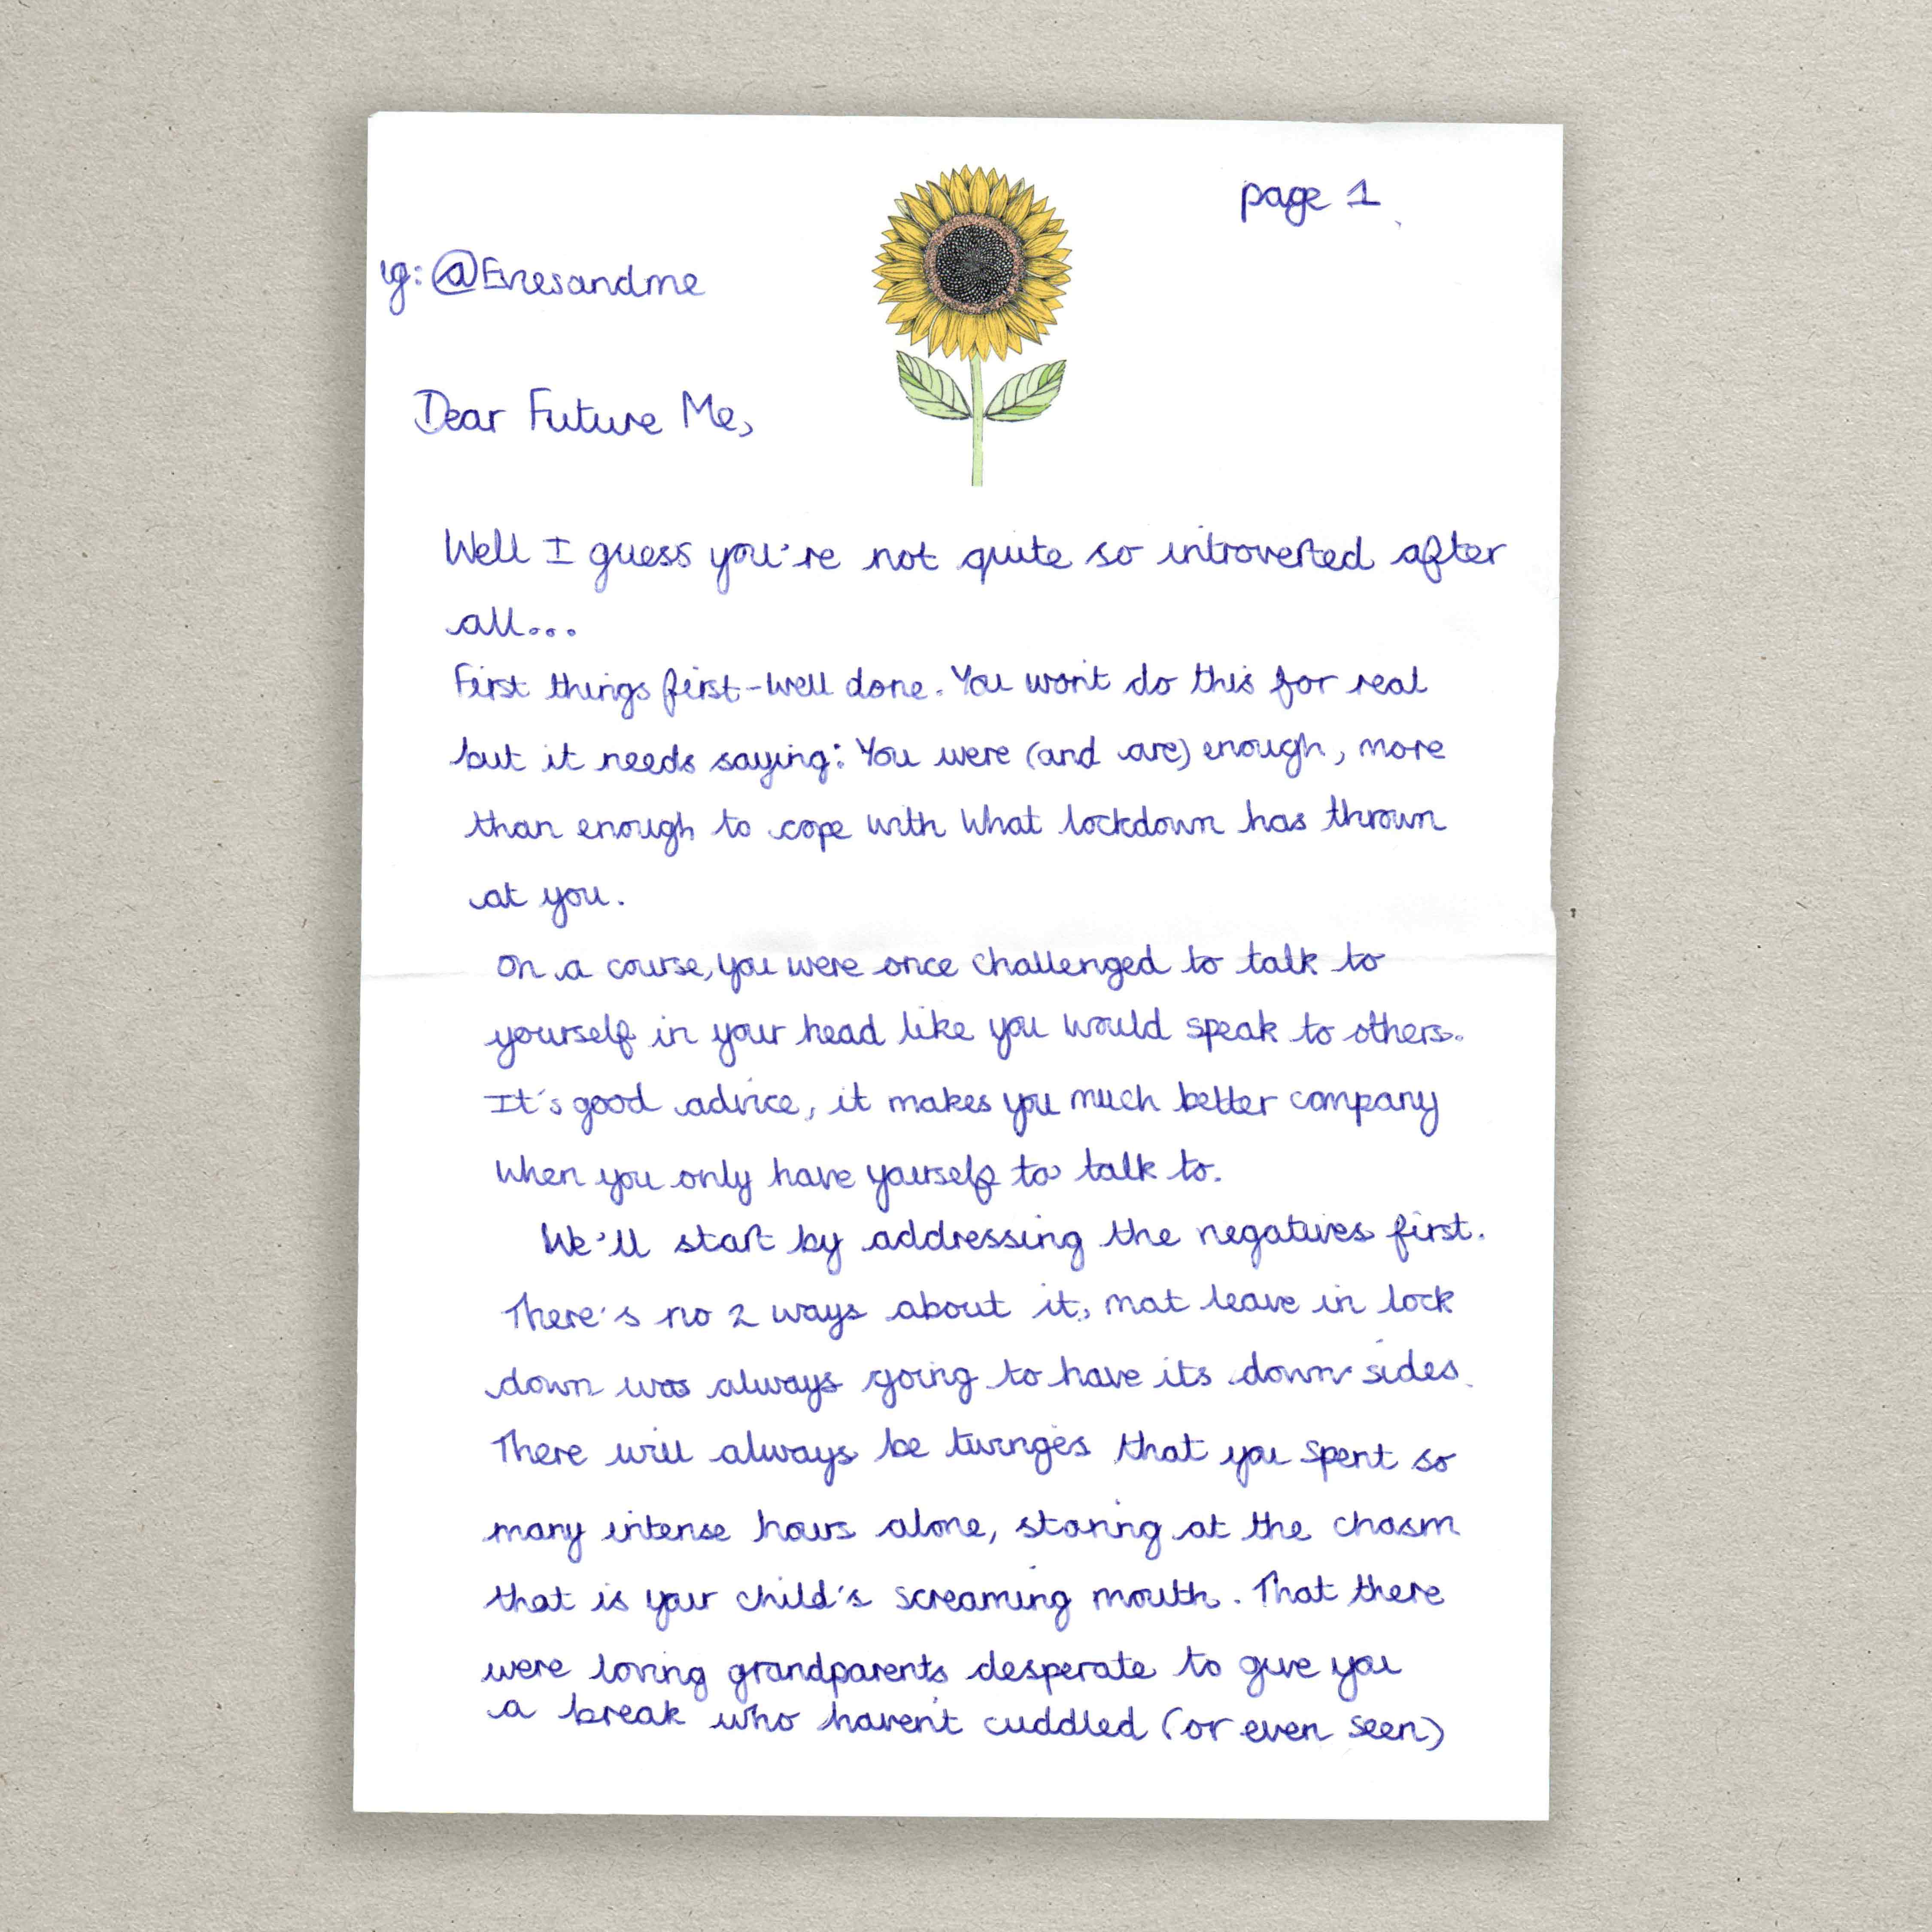 page 1
ig: @Evesandme
Dear Future Me,
Well I guess you're not quite so introverted after
all...
First things first - well done. You won't do this for real
but it needs saying: You were (and are) enough, more
than enough to cope with what lockdown has thrown
at you.
On a course, you were once challenged to talk to
yourself in your head like you would speak to others.
It's good advice, it makes you much better company
when you only have yourself to talk to.
We'll start by addressing the negatives first.
There's no 2 ways about it, mat leave in lock
down was always going to have its down sides.
There will always be twinges that you spent so
many intense hours alone, staring at the chasm
that is your child's screaming mouth. That there
were loving grandparents desperate to give you
a break who haven't cuddled (or even seen)